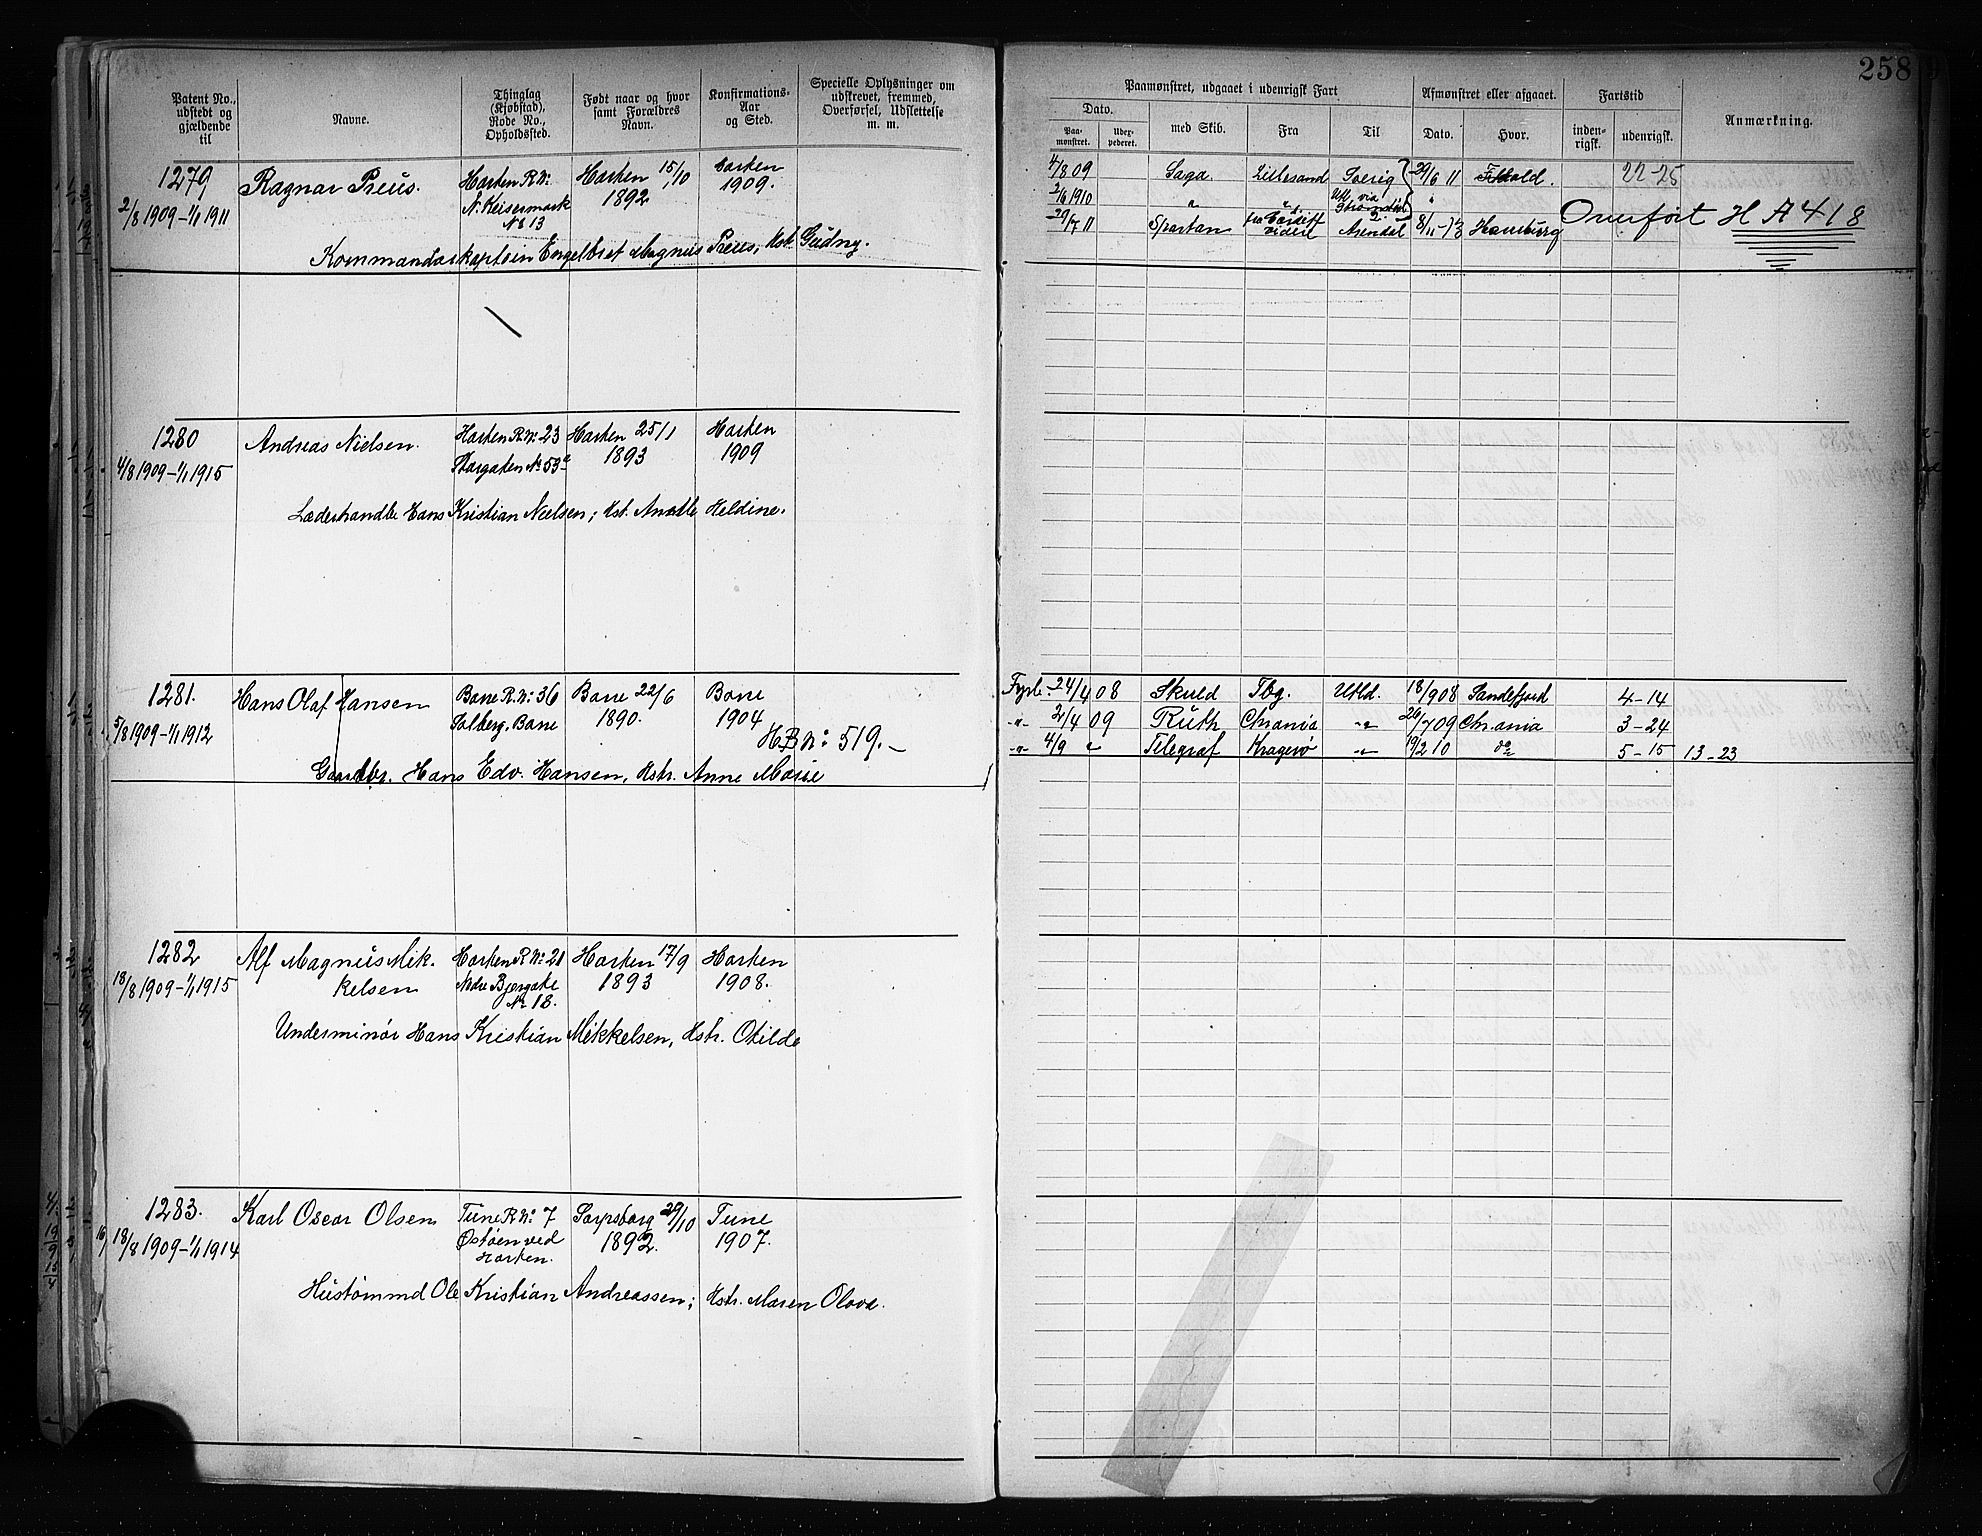 258
Patent No., udstedt og gjældende til
Navne.
Thinglag (Kjøbstad), Rode No., Opholdssted.
Født naar og hvor samt Forældres Navn.
Konfirmations-Aar og Sted.
Specielle Oplysninger om udskrevet, fremmed, Overførsel, Udslettelse m. m.
Paamønstret, udgaaet i udenrigsk Fart
Afmønstret eller afgaaet.
Fartstid
Anmærkning.
Dato.
Paamønstret.
med Skib.
Fra
Til
Dato.
Hvor.
inden-rigsk.
udenrigsk.
1279
2/8 1909-1/1 1911
Ragnar Preus.
Horten R.No:
N. Keisermark
No 13
Horten 15/10
1892
Horten
1909.
Kommandørkaptein Engelbret Magnus Preus, Hstr. Gudny.
4/8 09 Saga Lillesand Sverig 29/6 11 22-25
2/6 1910 "
29/7 11 Spartan Arendal 8/11-13 Hamburg
Overført H A 418
1280
4/8 1909-1/1 1915
Andreas Nielsen.
Horten R.No: 23
Storgaten No 53a
Horten 25/1
1893
Horten
1909
Læderhandler Hans Kristian Nielsen; Hst. Anette Heldine.
1281.
5/8 1909-1/1 1912
Hans Olaf Hansen
Borre R.No: 36
Solberg, Borre
Borre 22/6
1890.
Borre
1904
H.B No: 519.-
Gaardbr. Hans Edv. Hansen, Hstr. Anne Marie
24/4 08 Skuld Tbg. Utld. 18/9 08 Sandefjord 4-14
-"- 2/4 09 Ruth Chrania -"- 26/7 09 Chrania 3-24
-"- 4/9 " Telegraf Kragerø -"- 19/2 10 do 5-15 13-23
1282
18/8 1909-1/1 1915
Alf Magnus Mik-
kelsen
Horten R.No: 21
Nedre Bjergate
No 18.
Horten 17/9
1893
Horten
1908.
Underminør Hans Kristian Mikkelsen, Hstr. Otilde
1283.
18/8 1909-1/1 1914
Karl Oscar Olsen
Tune R.No: 7
Østøen ved
Horten.
Sarpsborg 29/10
1892.
Tune
1907.
Hustømmd Ole Kristian Andreassen; Hstr. Maren Olova.